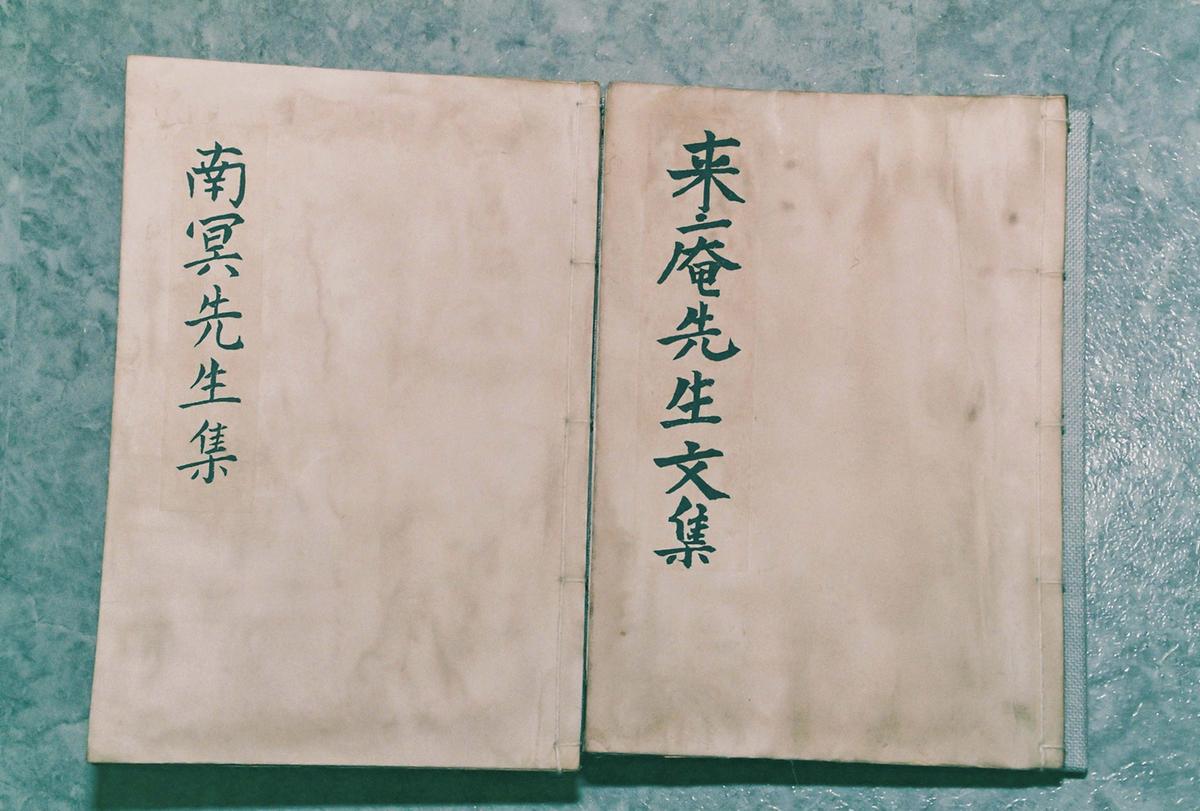 来庵先生文集
南冥先生集